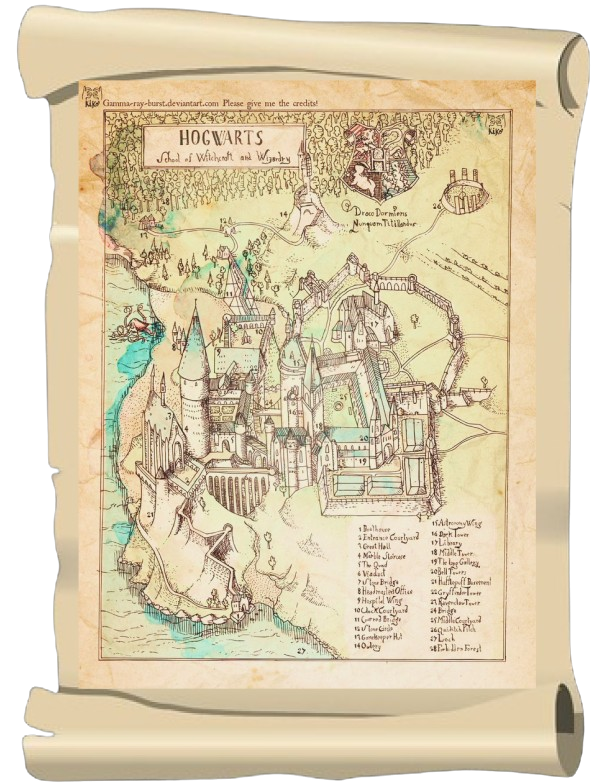 KiKé
Gamma-ray-burst.deviantart.com Please give me the credits!
HOGWARTS
School of Witchcraft and Wizardry
KiKé
Draco Dormiens
Nunquam Titillandus
26
14
28
17
10
9
4
25
20
19
21
27
1 Boathouse
2 Entrance Courtyard
3 Great Hall
4 Marble Staircase
5 The Quad
6 Viaduct
7 Stone Bridge
8 Headmasters Office
9 Hospital Wing
10 Clock Courtyard
11 Covered Bridge
12 Stone Circle
13 Gamekeeper Hut
14 Owlery
15 Astronomy Wing
16 Dark Tower
17 Library
18 Middle Tower
19 The Long Gallery
20 Bell Towers
21 Hufflepuff Basement
22 Gryffindor Tower
23 Ravenclaw Tower
24 Bridge
25 Middle Courtyard
26 Quidditch Pitch
27 Lock
28 Forbidden Forest